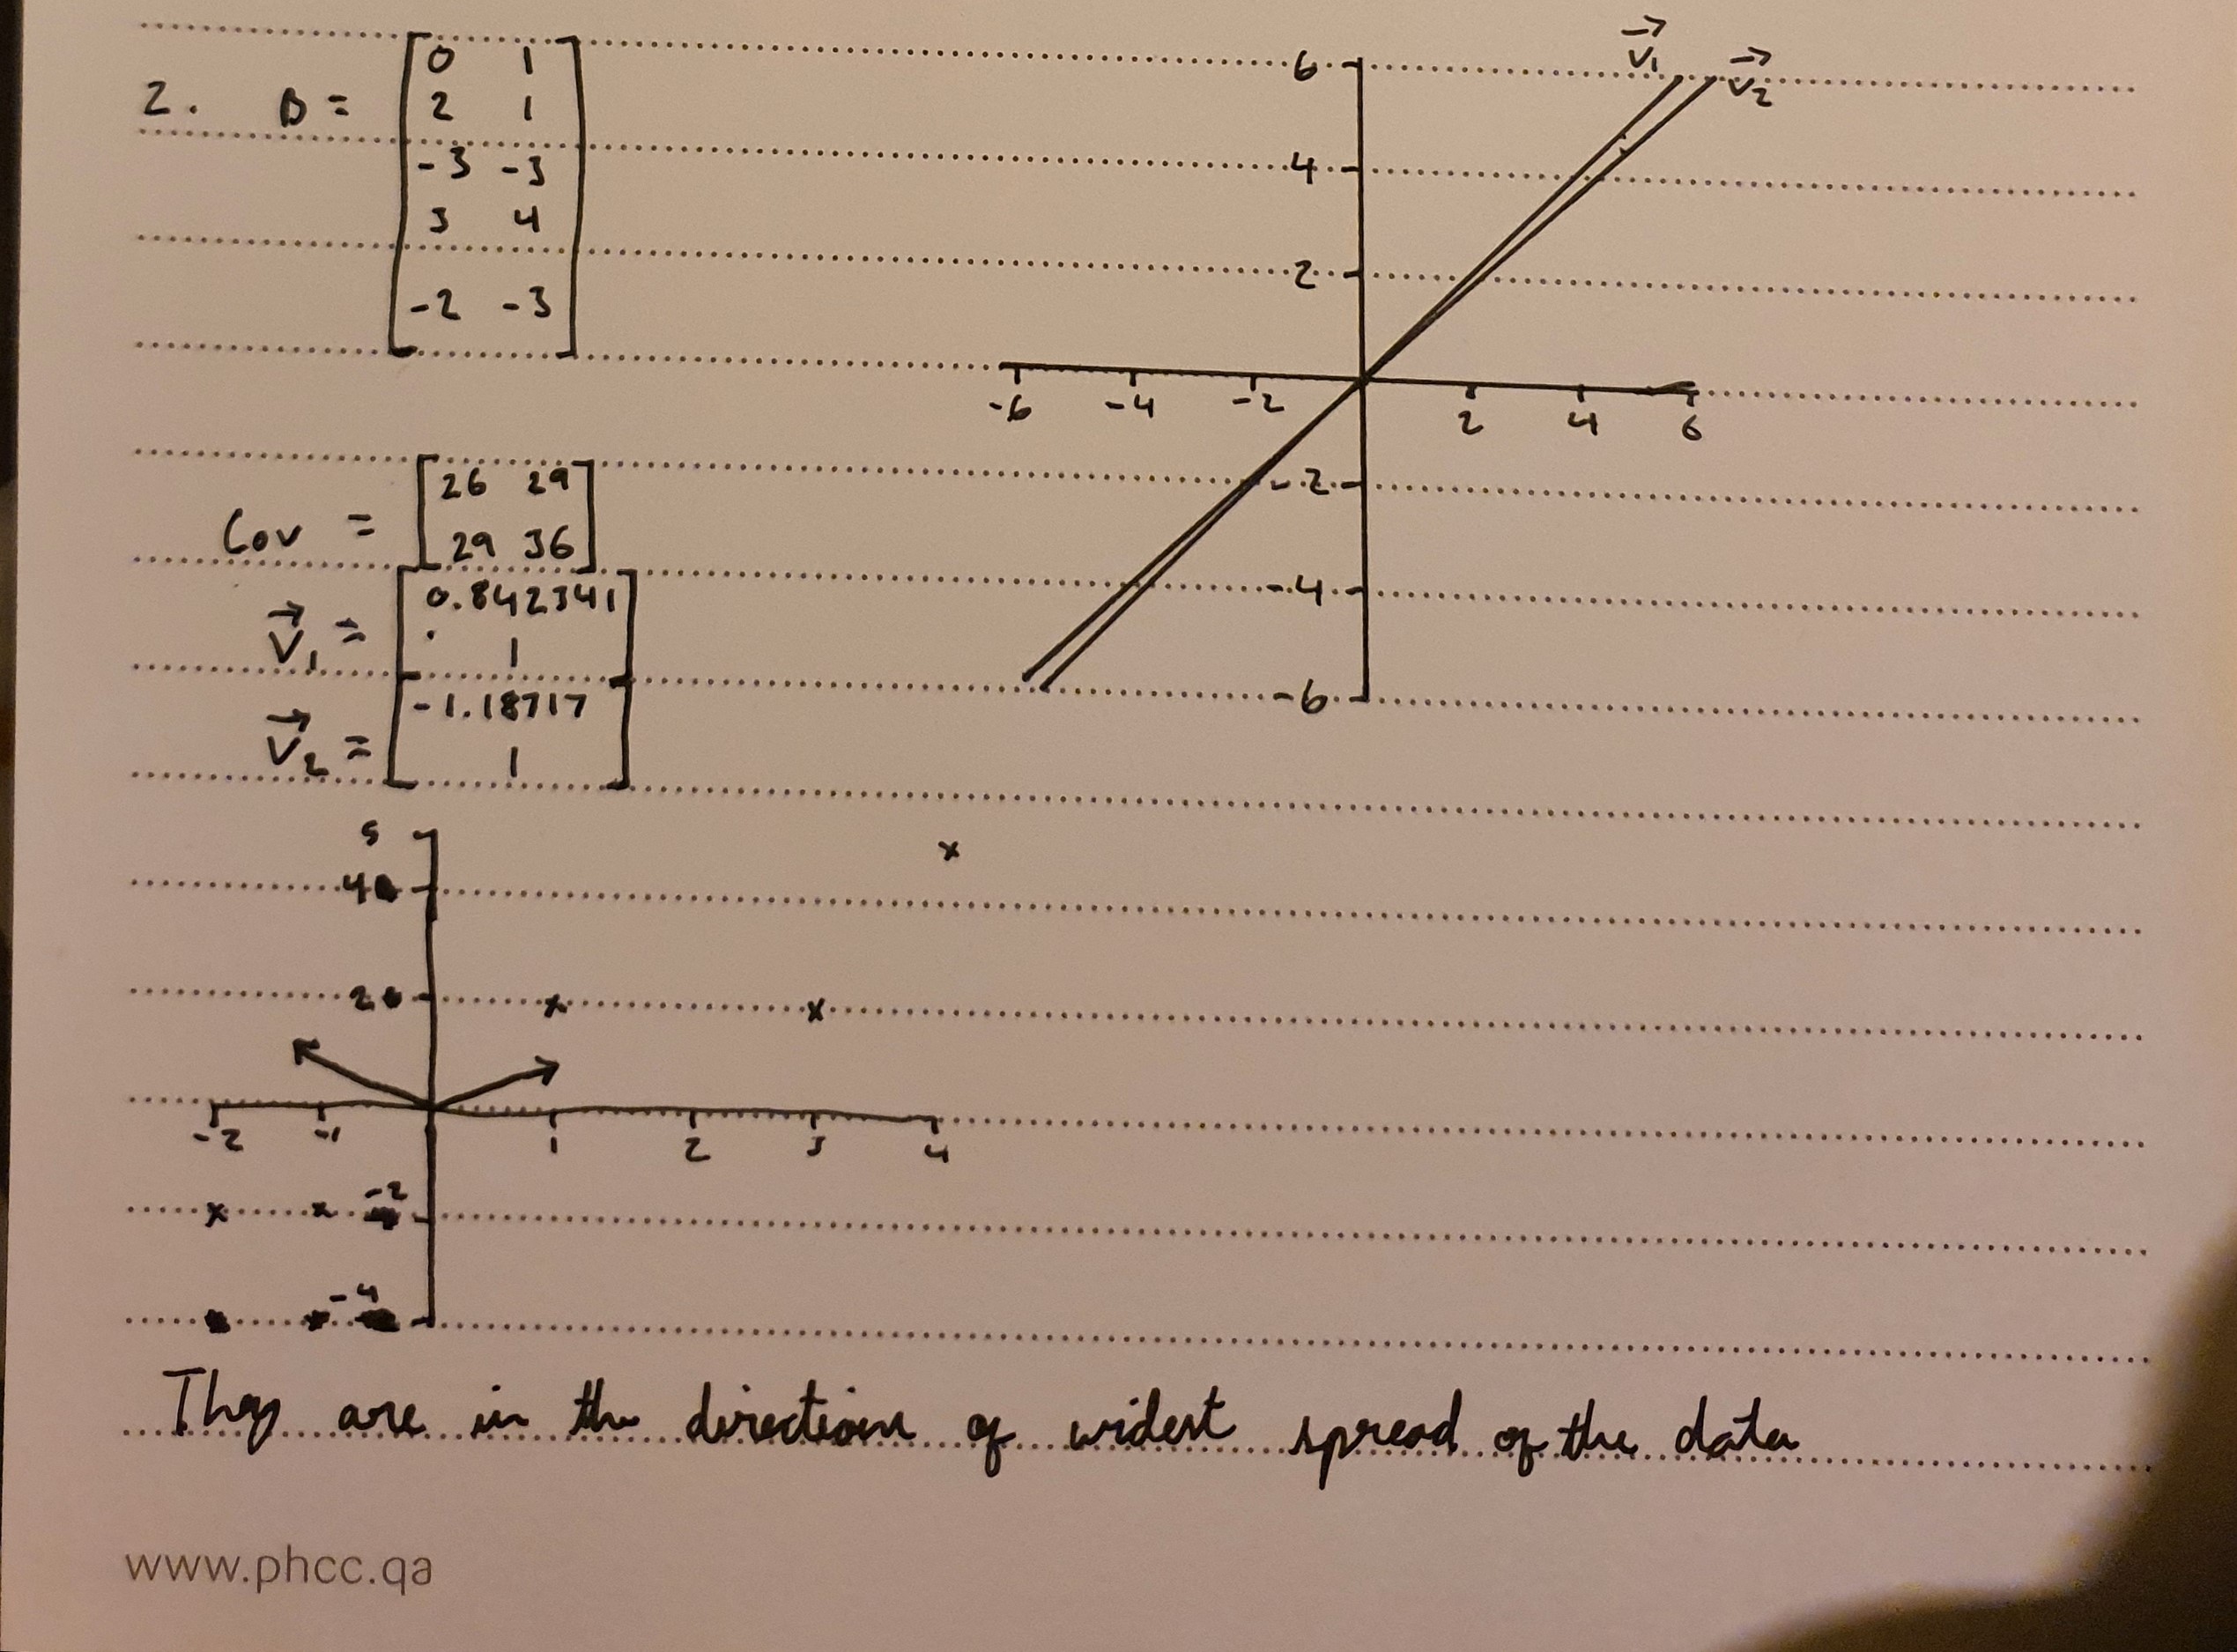 2. B = [0 1
2 1
-3 -3
3 4
-2 -3]
6
4
2
-6 -4 -2 2 4 6
-2
-4
-6
V₁
V₂
Cov = [26 29
29 36]
V₁ = [0.842341
1]
V₂ = [-1.18717
1]
5
4
2
-2 -1 1 2 3 4
-2
-4
They are in the direction of widest spread of the data
www.phcc.qa